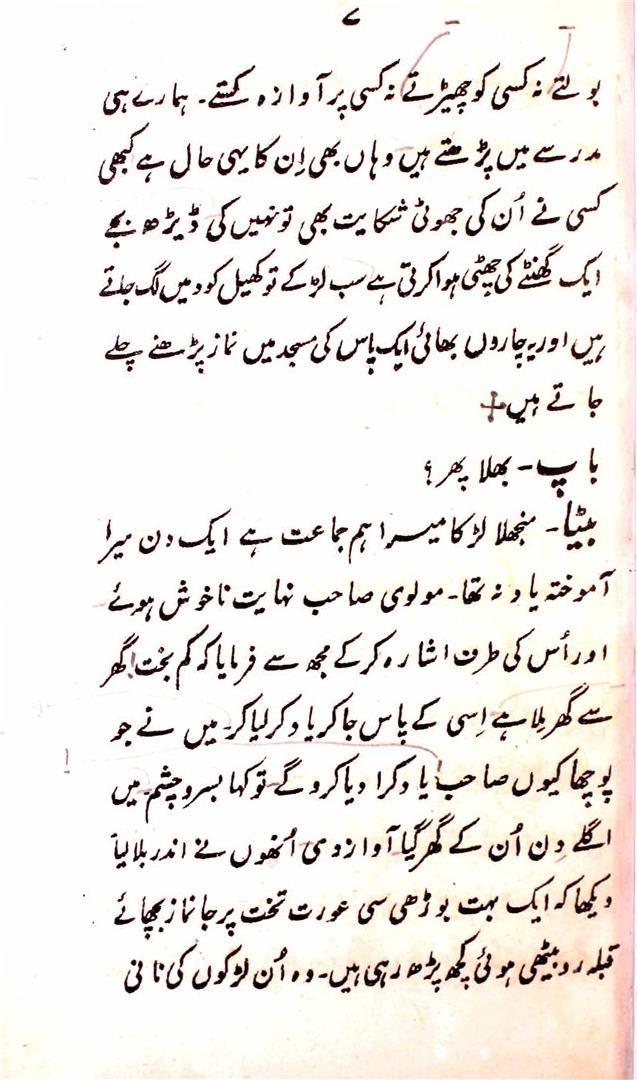 ۷
بولتے نہ کسی کو چھیڑتے نہ کسی پر آوازہ کستے۔ ہمارے ہی
مدرسے میں پڑھتے ہیں وہاں بھی اِن کا یہی حال ہے کبھی
کسی نے اُن کی جھوٹی شکایت بھی تو نہیں کی ڈیڑھ بجے
ایک گھنٹے کی چھٹی ہوا کرتی ہے سب لڑکے تو کھیل کود میں لگ جاتے
ہیں اور یہ چاروں بھائی ایک پاس کی مسجد میں نماز پڑھنے چلے
جاتے ہیں
باپ۔ بھلا پھر؟
بیٹا۔ منجھلا لڑکا میرا ہم جماعت ہے ایک دن میرا
آموختہ یاد نہ تھا۔ مولوی صاحب نہایت ناخوش ہوئے
اور اُس کی طرف اشارہ کر کے مجھ سے فرمایا کہ کم بخت! گھر
سے گھر ملا ہے اِسی کے پاس جا کر یاد کر لیا کر میں نے جو
پوچھا کیوں صاحب! یاد کرا دیا کرو گے تو کہا بسر و چشم میں
اگلے دن اُن کے گھر گیا آواز دی اُنھوں نے اندر بلا لیا
دیکھا کہ ایک بہت بوڑھی سی عورت تخت پر جا نماز بچھائے
قبلہ رو بیٹھی ہوئی کچھ پڑھ رہی ہیں۔ وہ اُن لڑکوں کی نانی